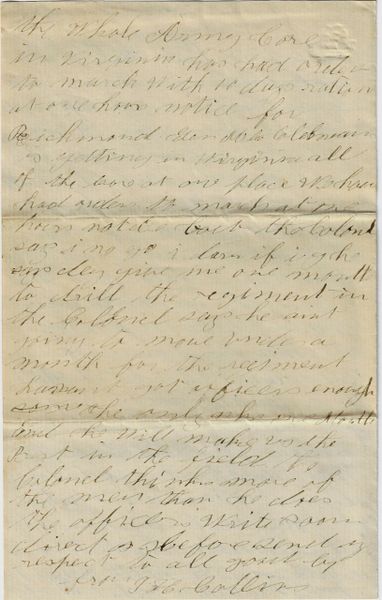 the Whole Armey Core
in Virginia has had orders
to march with 10 days ration
at one hour notice for
Richmond
is getting in Virginia all
of the core at one place We have
had orders to march at one
hour notice but the Colonel
say i no go i darn if i go he
say they give me one month
to drill the regiment in
the Colonel says he aint
going to move under a
month for the regiment
havent got officers enough
he only month
and he will make us the
Best in the field the
Colonel thinks more of
the men than he does
the officers Write soon
direct as before send my
respect to all good by
from Collins